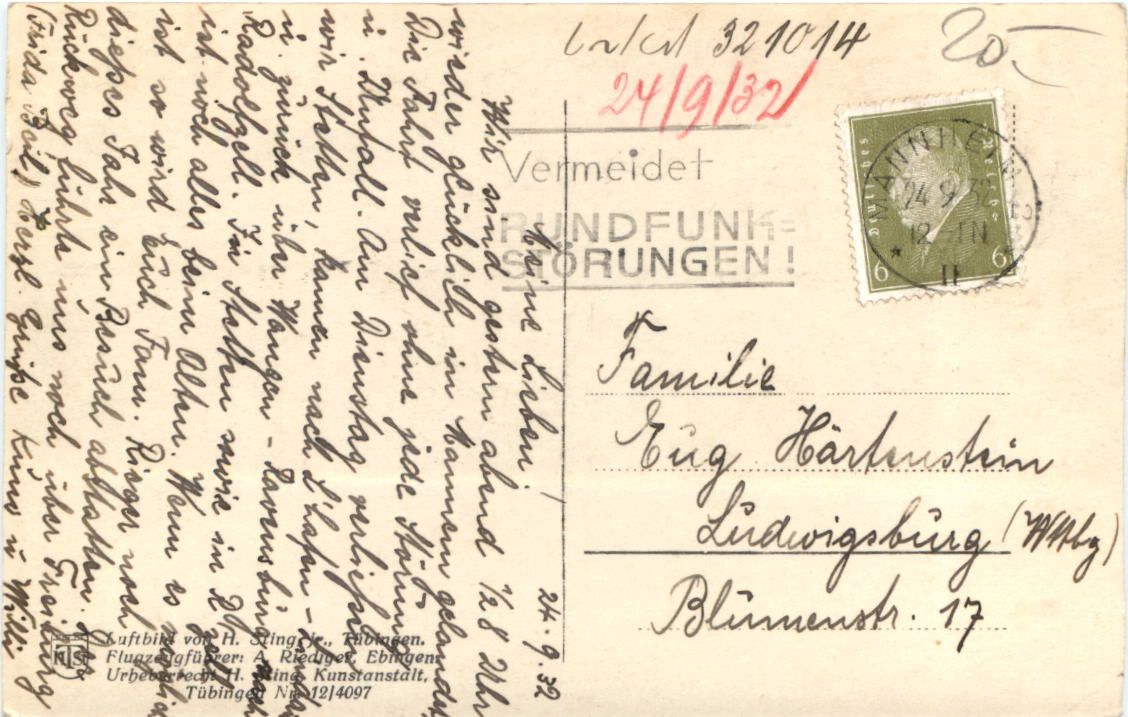 321014
20.-
24/9/32
Vermeidet
RUNDFUNK=
STÖRUNGEN!
Deutsches Reich
6 6
MANNHEIM
24.9.32
12-1N
* II
24.9.32
Meine Lieben!
Wir sind gestern abend 1/2 8 Uhr
wieder glücklich in Mannem gelandet
Die Fahrt verlief ohne jede Störung
u. Unfall. Am Dienstag verließen
wir Stetten, kamen nach L'hafen-
u. zurück über Wangen - Ravensburg nach
Radolfzell. In Stetten sowie in R'zell
ist noch alles beim Alten. Wenn es möglich
ist so wird Euch Fam. Rieger noch
dieses Jahr ein Besuch abstatten.
Rückweg führte uns noch über Freiburg
(Frida Beil) Herzl. Grüße Kuno u Willi
Familie
Eug Härtenstein
Ludwigsburg (Wttbg)
Blumenstr. 17
Luftbild von H. Sting jr., Tübingen.
Flugzeugführer: A. Riediger, Ebingen.
Urheberrecht H. Sting, Kunstanstalt,
Tübingen Nr. 12/4097